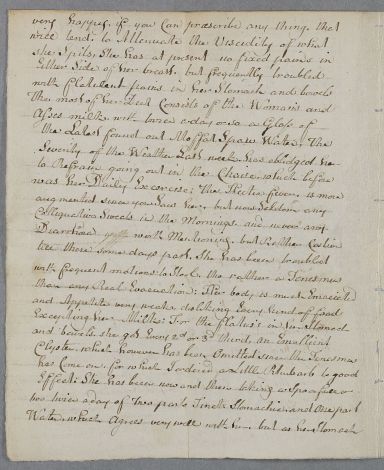 very happy, if you Can prescribe any thing that
will tend to Attenuate the Viscidity of what
she Spits, She has at present no fixed pains in
Either Side of her breast, but frequently troubled
with flatulent pains in her Stomach and bowels
The most of her Diet Consists of the Womans and
Asses milk with twice a day or so a Glass of
the Latest found out Moffat Spaw Water, The
Severity of the Weather Last week has obliged her
to Refrain going out in the Chaise, which before
was her Daily Exercise; The Hectic fever is more
augmented since you Saw her, but now Seldom any
Colliquative Sweats in the Mornings and never any
Diarrhea worth Mentioning, but Rather Costive
till these some days past, She has been troubled
with frequent motions to Stool, tho rather a Tenesmus
than any Real Evacuation: The body is most Emaciated
and Appetite very weak, Loathing Every kind of food
Excepting her Milks: For the flatus's in her Stomach
and bowels she got Every 2d or 3d third, an Emollient
Clyster, which however has been Omitted since the Tenesmus
has Come on, for which I ordered a Little Rhubarb to good
Effect; She has been now and then taking a Spoonfull or
two twice a day of two parts Tinct: Stomachic and one part
Water, which Agrees very well with her, but as her Stomach